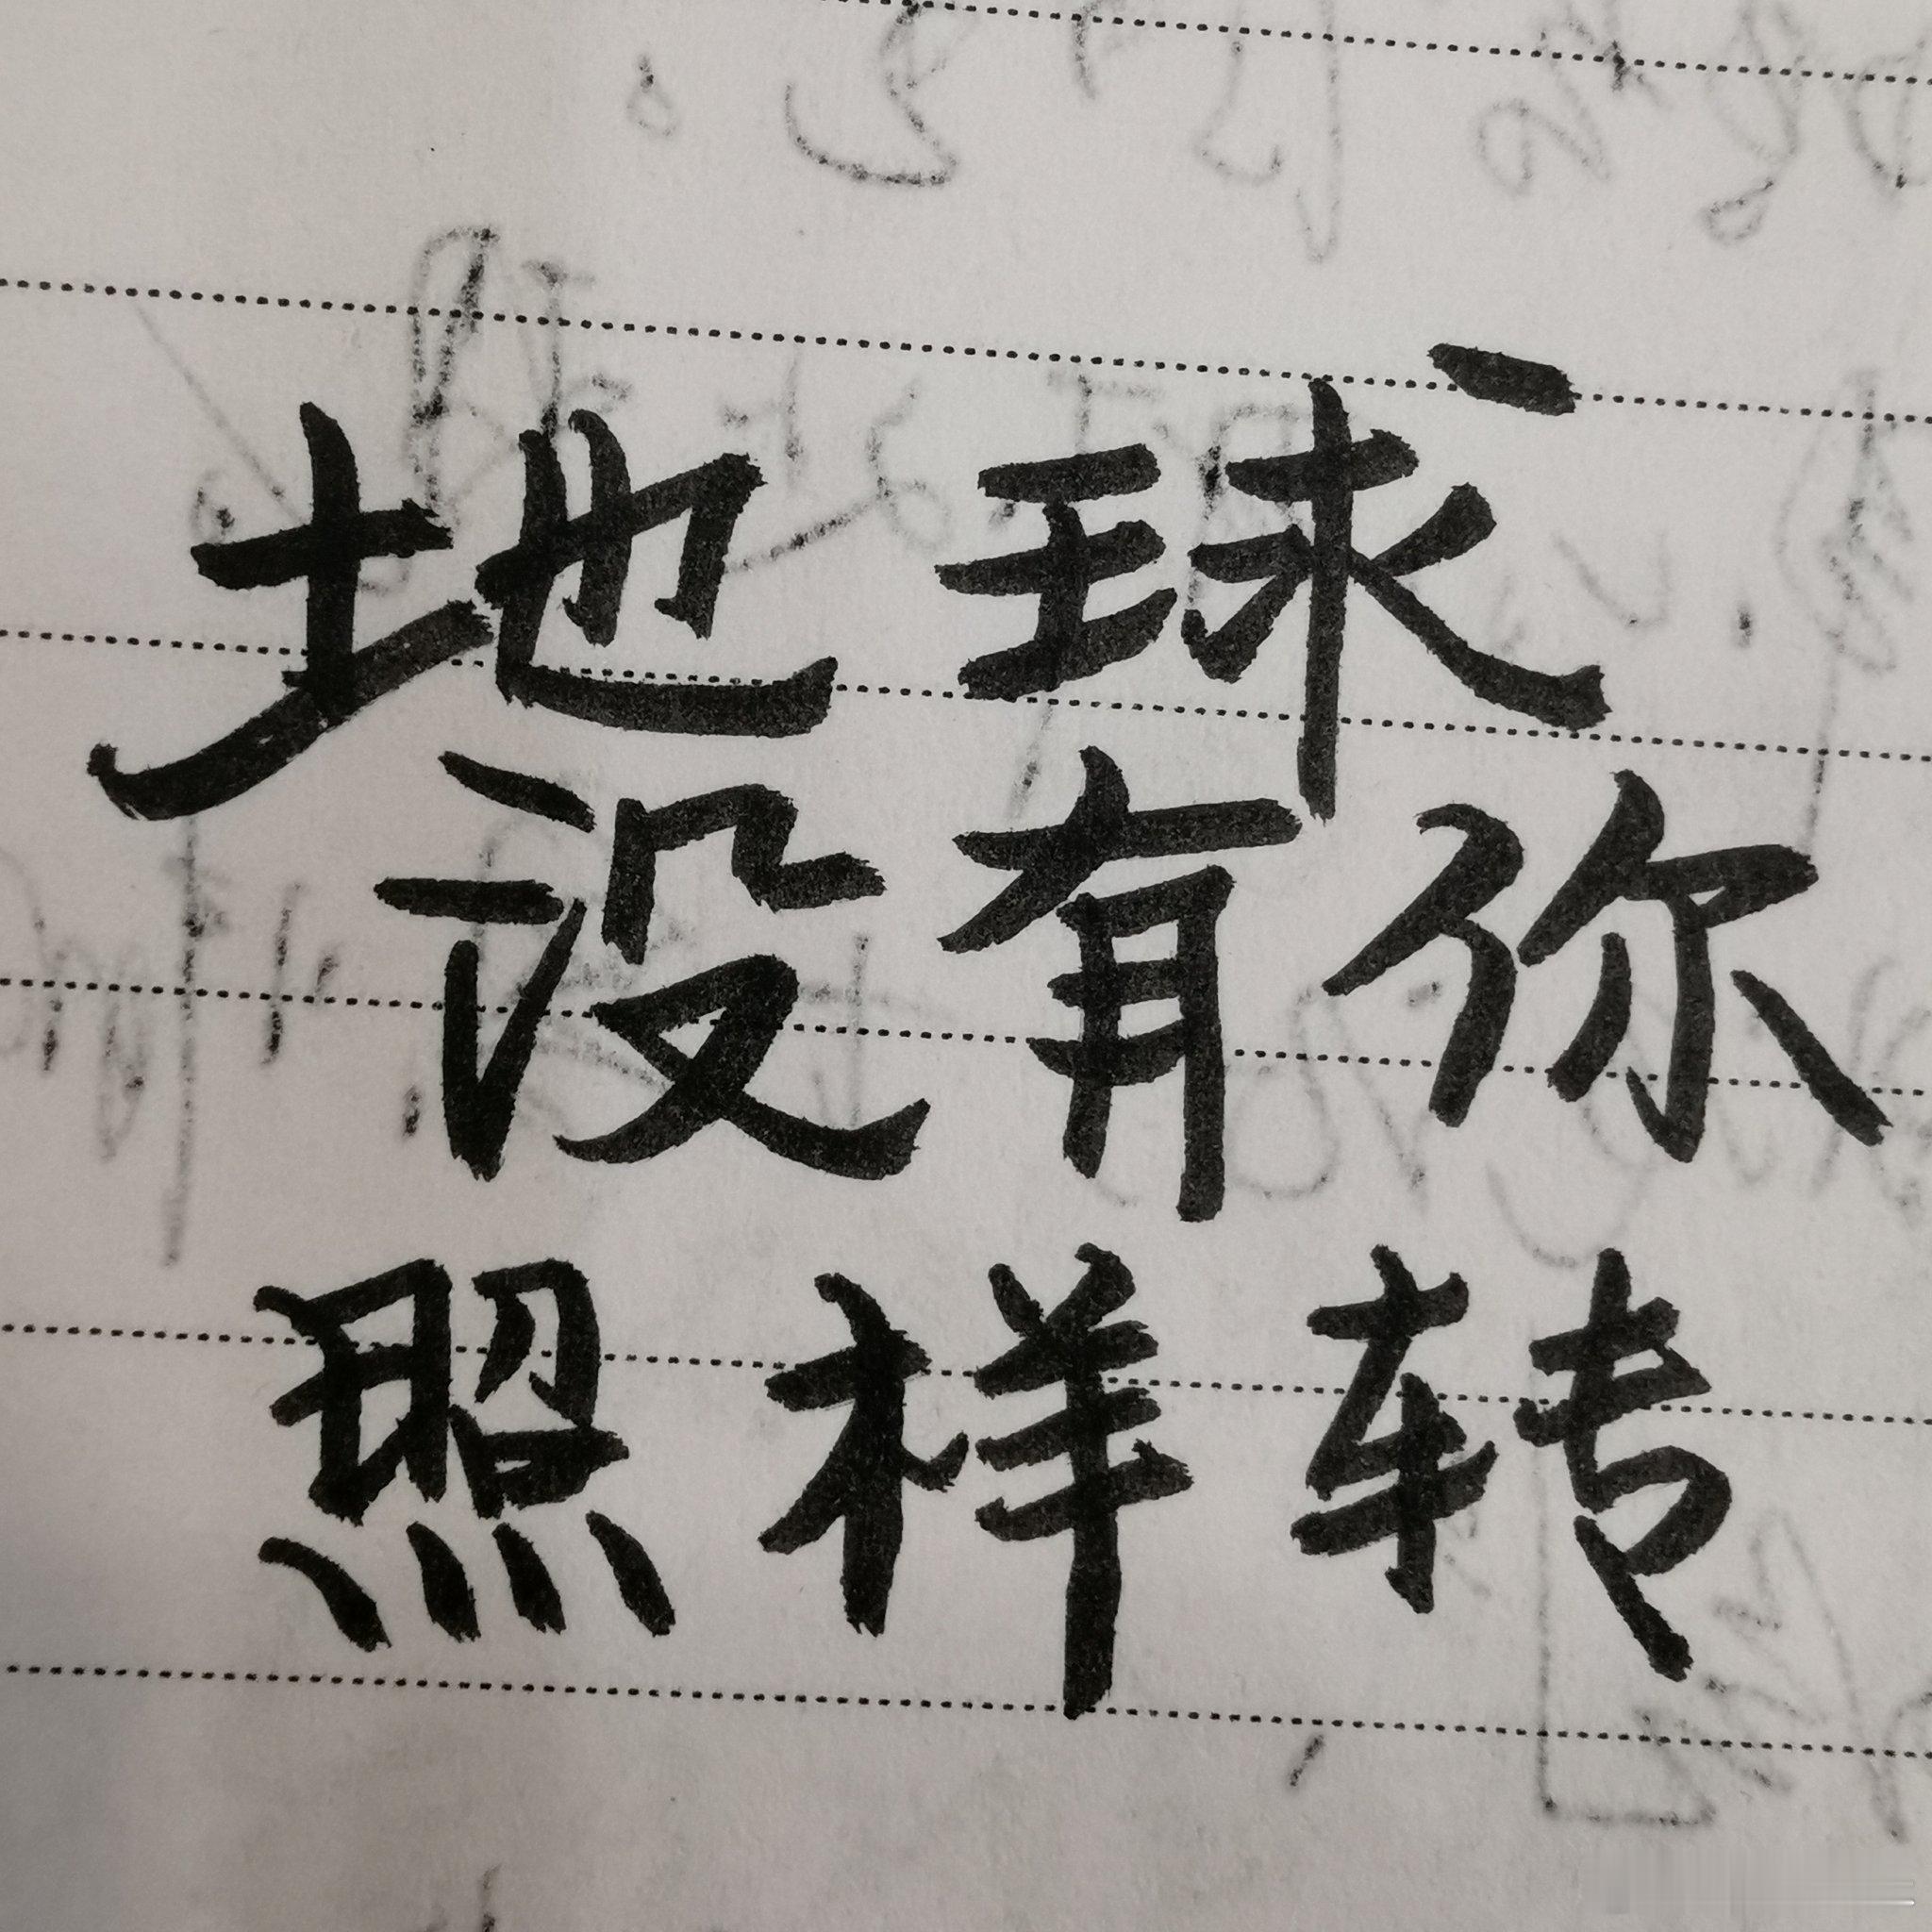 地球
没有你
照样转